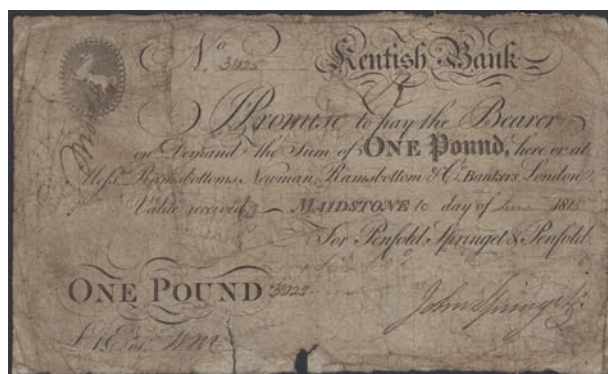 No Kentish Bank
a 38125
I Promise to pay the Bearer
on Demand the Sum of ONE Pound, here or at
Messrs. Ramsbottoms, Newman, Ramsbottom & Co. Bankers, London
Value received — MAIDSTONE 10 day of June 1815
For Penfold, Springet & Penfold.
ONE POUND
John Springett